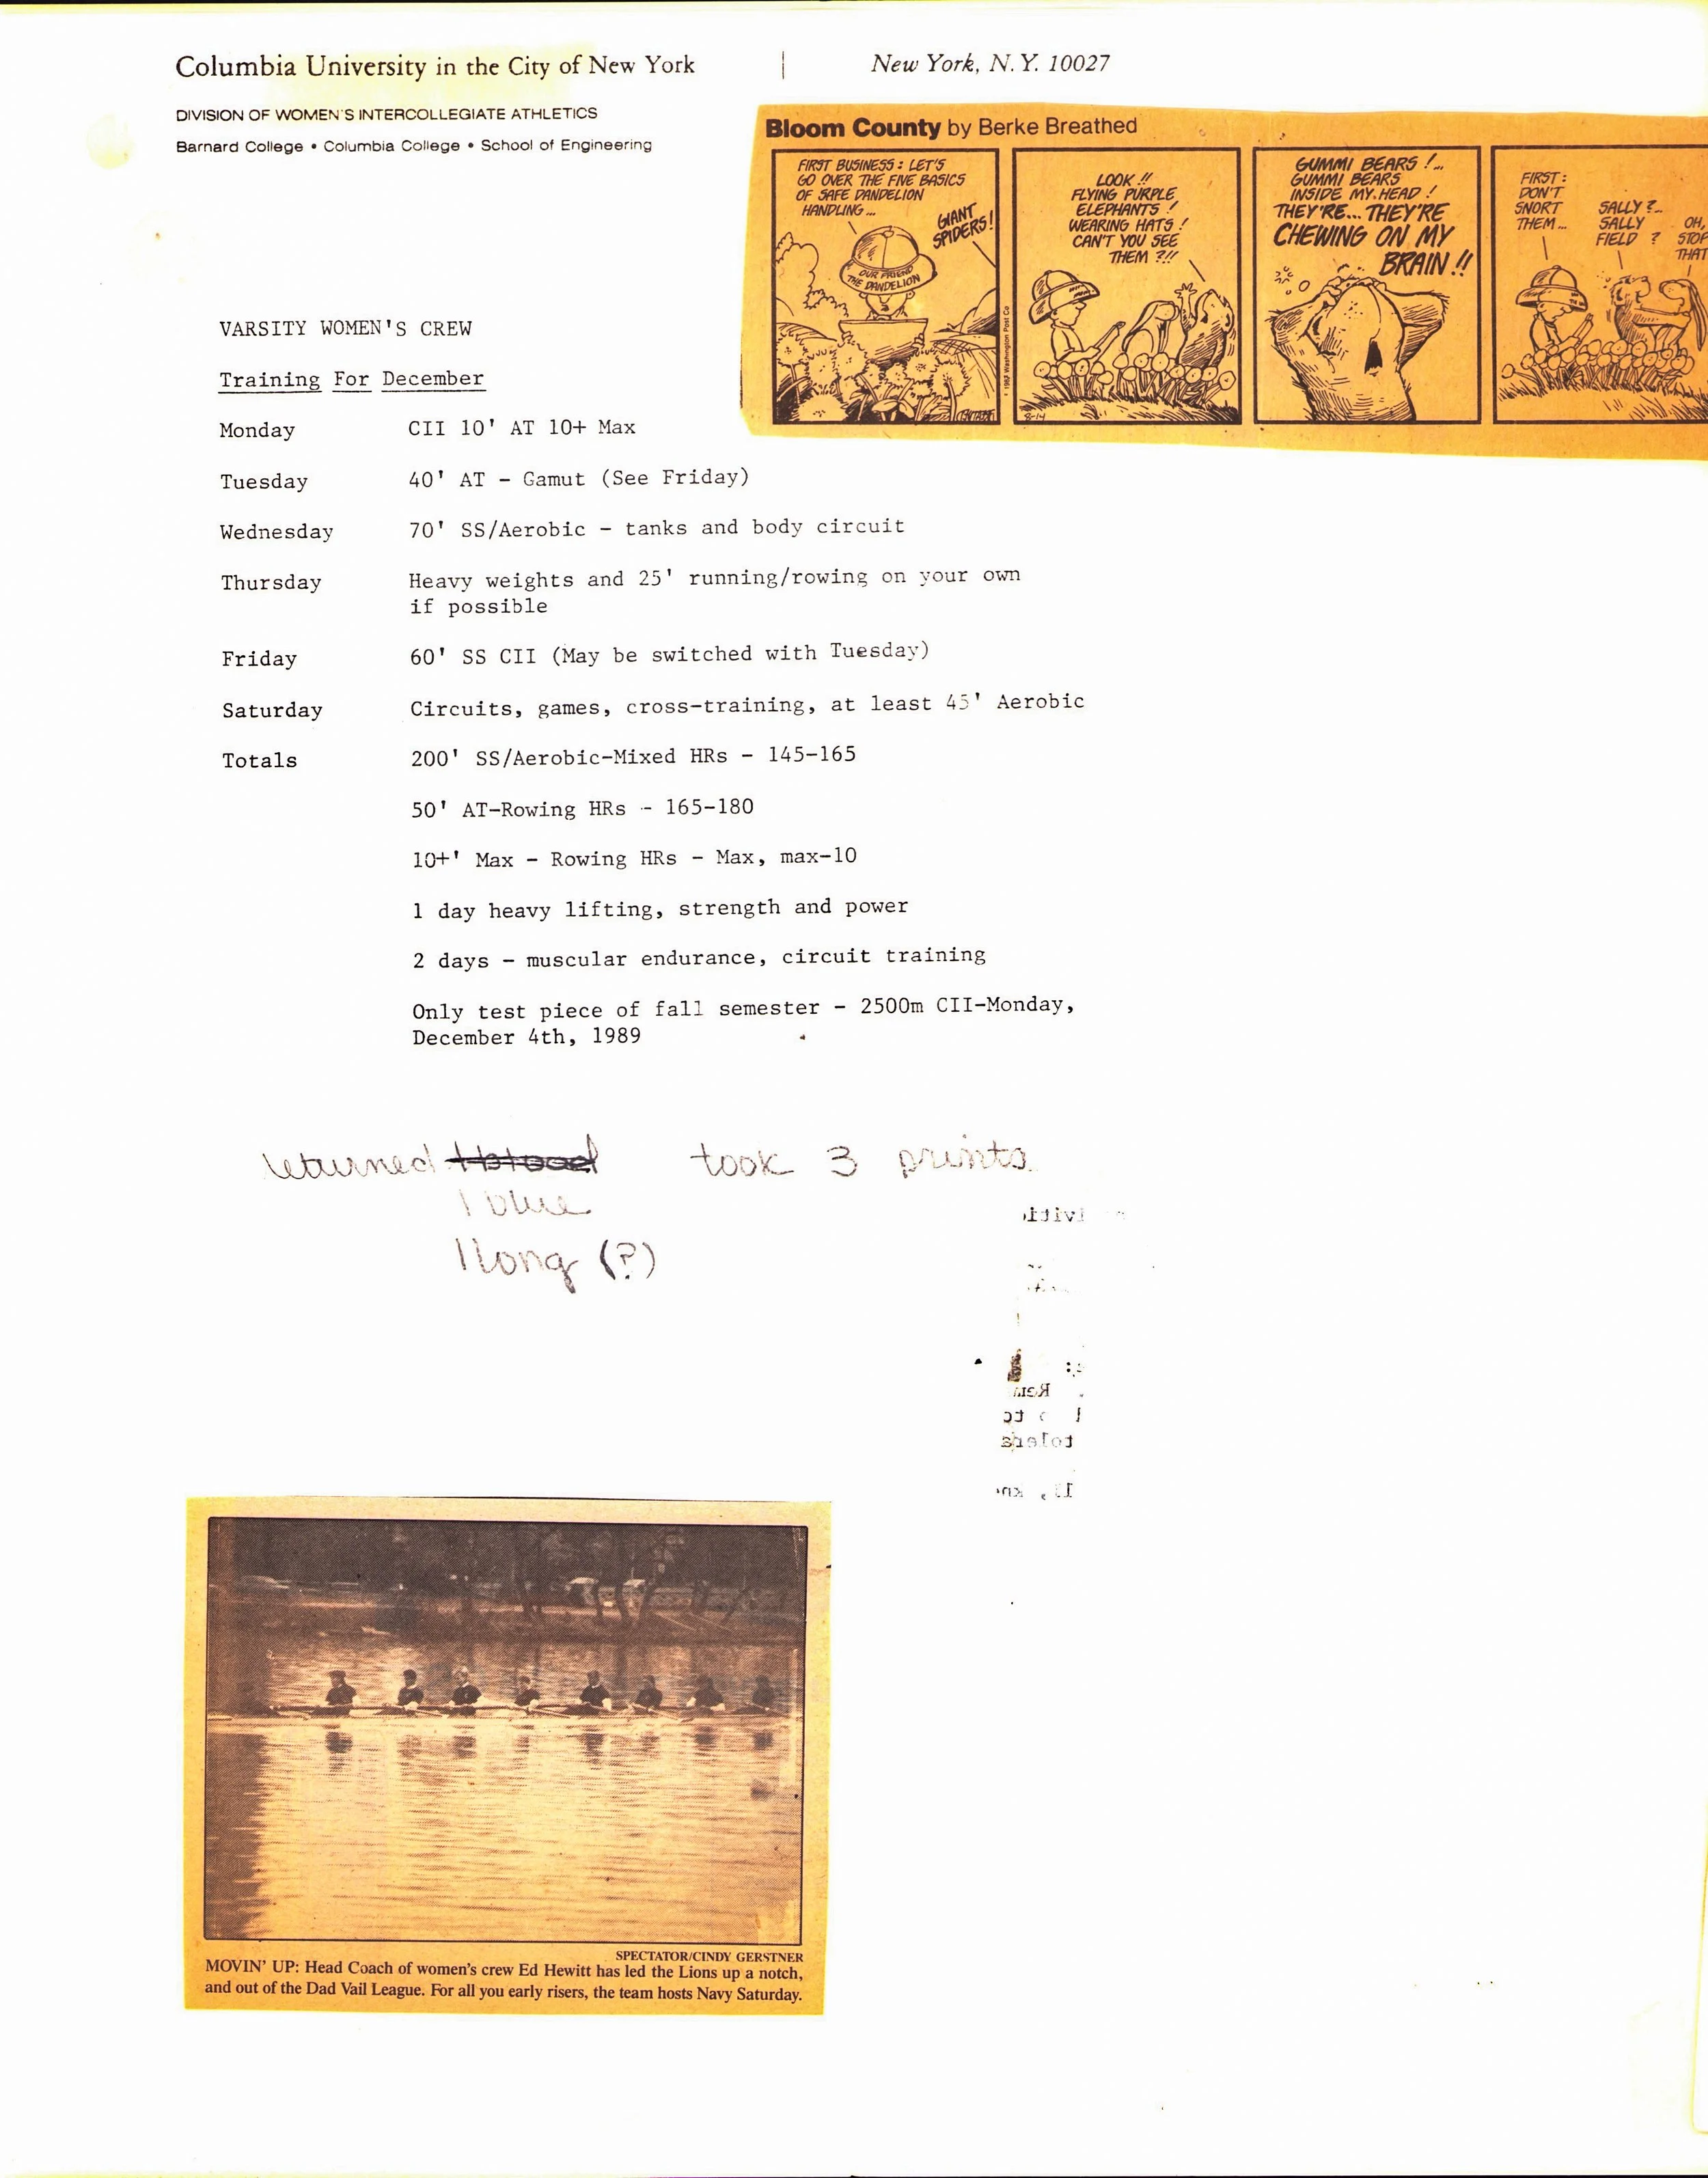 Columbia University in the City of New York | New York, N.Y. 10027
DIVISION OF WOMEN'S INTERCOLLEGIATE ATHLETICS
Barnard College • Columbia College • School of Engineering
Bloom County by Berke Breathed
FIRST BUSINESS: LET'S
GO OVER THE FIVE BASICS
OF SAFE DANDELION
HANDLING...
GIANT
SPIDERS!
OUR FRIEND
THE DANDELION
© 1983 Washington Post Co
LOOK!!
FLYING PURPLE
ELEPHANTS!
WEARING HATS!
CAN'T YOU SEE
THEM?!!
8-14
GUMMI BEARS!...
GUMMI BEARS
INSIDE MY HEAD!
THEY'RE... THEY'RE
CHEWING ON MY
BRAIN!!
FIRST:
DON'T
SNORT
THEM...
SALLY?...
SALLY
FIELD?
OH,
STOP
THAT
VARSITY WOMEN'S CREW
Training For December
Monday CII 10' AT 10+ Max
Tuesday 40' AT - Gamut (See Friday)
Wednesday 70' SS/Aerobic - tanks and body circuit
Thursday Heavy weights and 25' running/rowing on your own
if possible
Friday 60' SS CII (May be switched with Tuesday)
Saturday Circuits, games, cross-training, at least 45' Aerobic
Totals 200' SS/Aerobic-Mixed HRs - 145-165
50' AT-Rowing HRs - 165-180
10+' Max - Rowing HRs - Max, max-10
1 day heavy lifting, strength and power
2 days - muscular endurance, circuit training
Only test piece of fall semester - 2500m CII-Monday,
December 4th, 1989
returned took 3 prints
1 blue
1 long (?)
SPECTATOR/CINDY GERSTNER
MOVIN' UP: Head Coach of women's crew Ed Hewitt has led the Lions up a notch,
and out of the Dad Vail League. For all you early risers, the team hosts Navy Saturday.